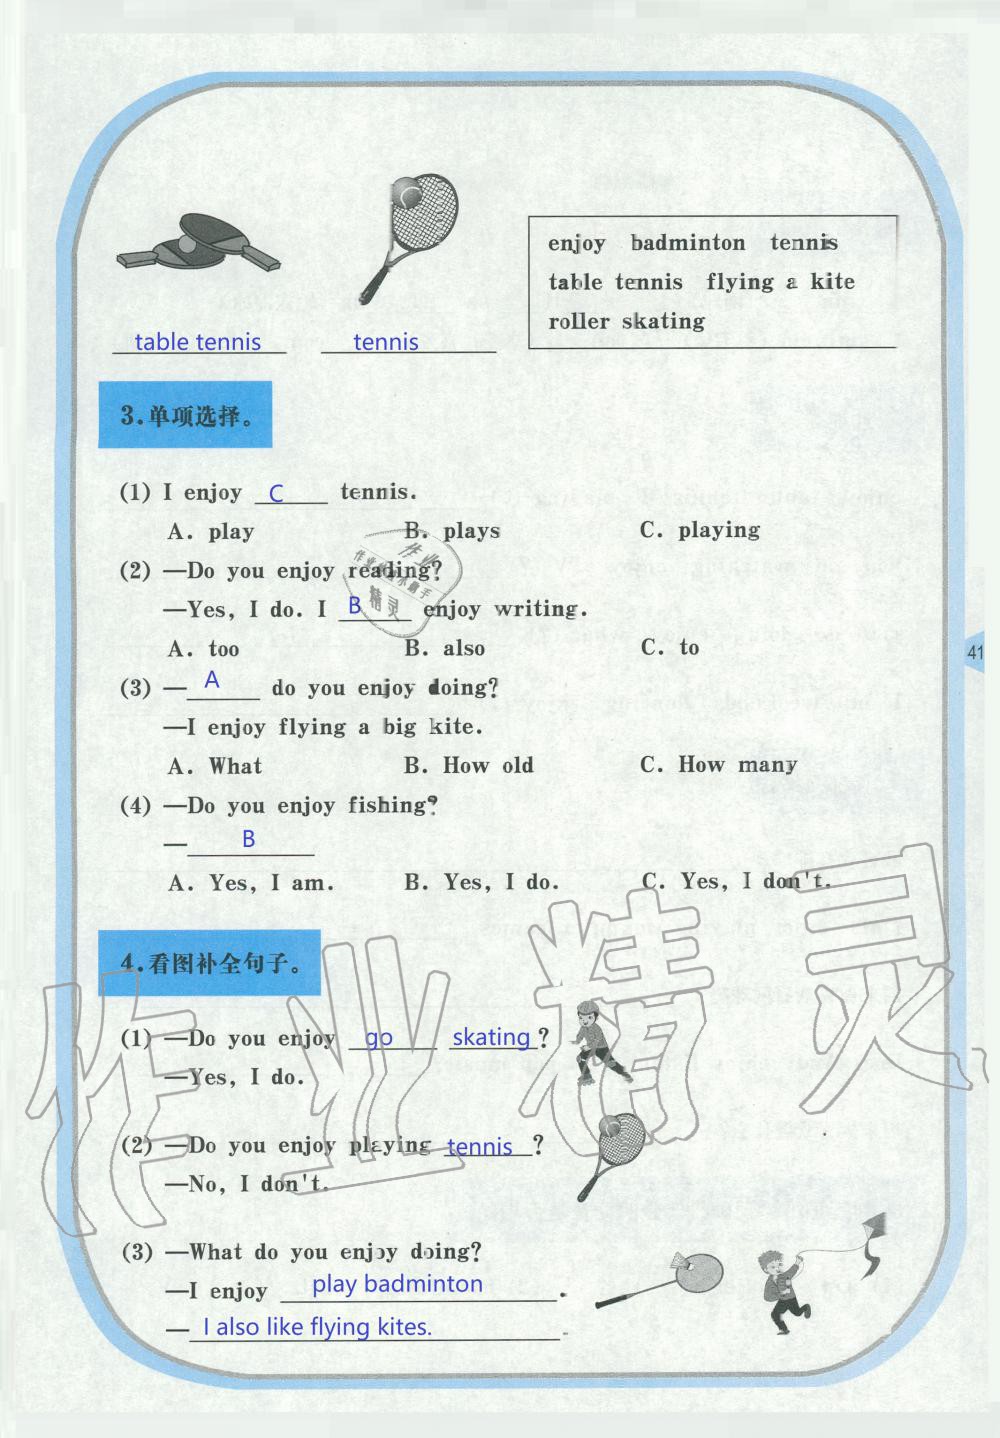 enjoy badminton tennis
table tennis flying a kite
roller skating
table tennis tennis
3.单项选择。
(1) I enjoy C tennis.
A. play B. plays C. playing
(2) —Do you enjoy reading?
—Yes, I do. I B enjoy writing.
A. too B. also C. to
(3) —A do you enjoy doing?
—I enjoy flying a big kite.
A. What B. How old C. How many
(4) —Do you enjoy fishing?
—B
A. Yes, I am. B. Yes, I do. C. Yes, I don't.
41
4.看图补全句子。
(1) —Do you enjoy go skating?
—Yes, I do.
(2) —Do you enjoy playing tennis?
—No, I don't.
(3) —What do you enjoy doing?
—I enjoy play badminton.
—I also like flying kites.
作业精灵
作业
精灵